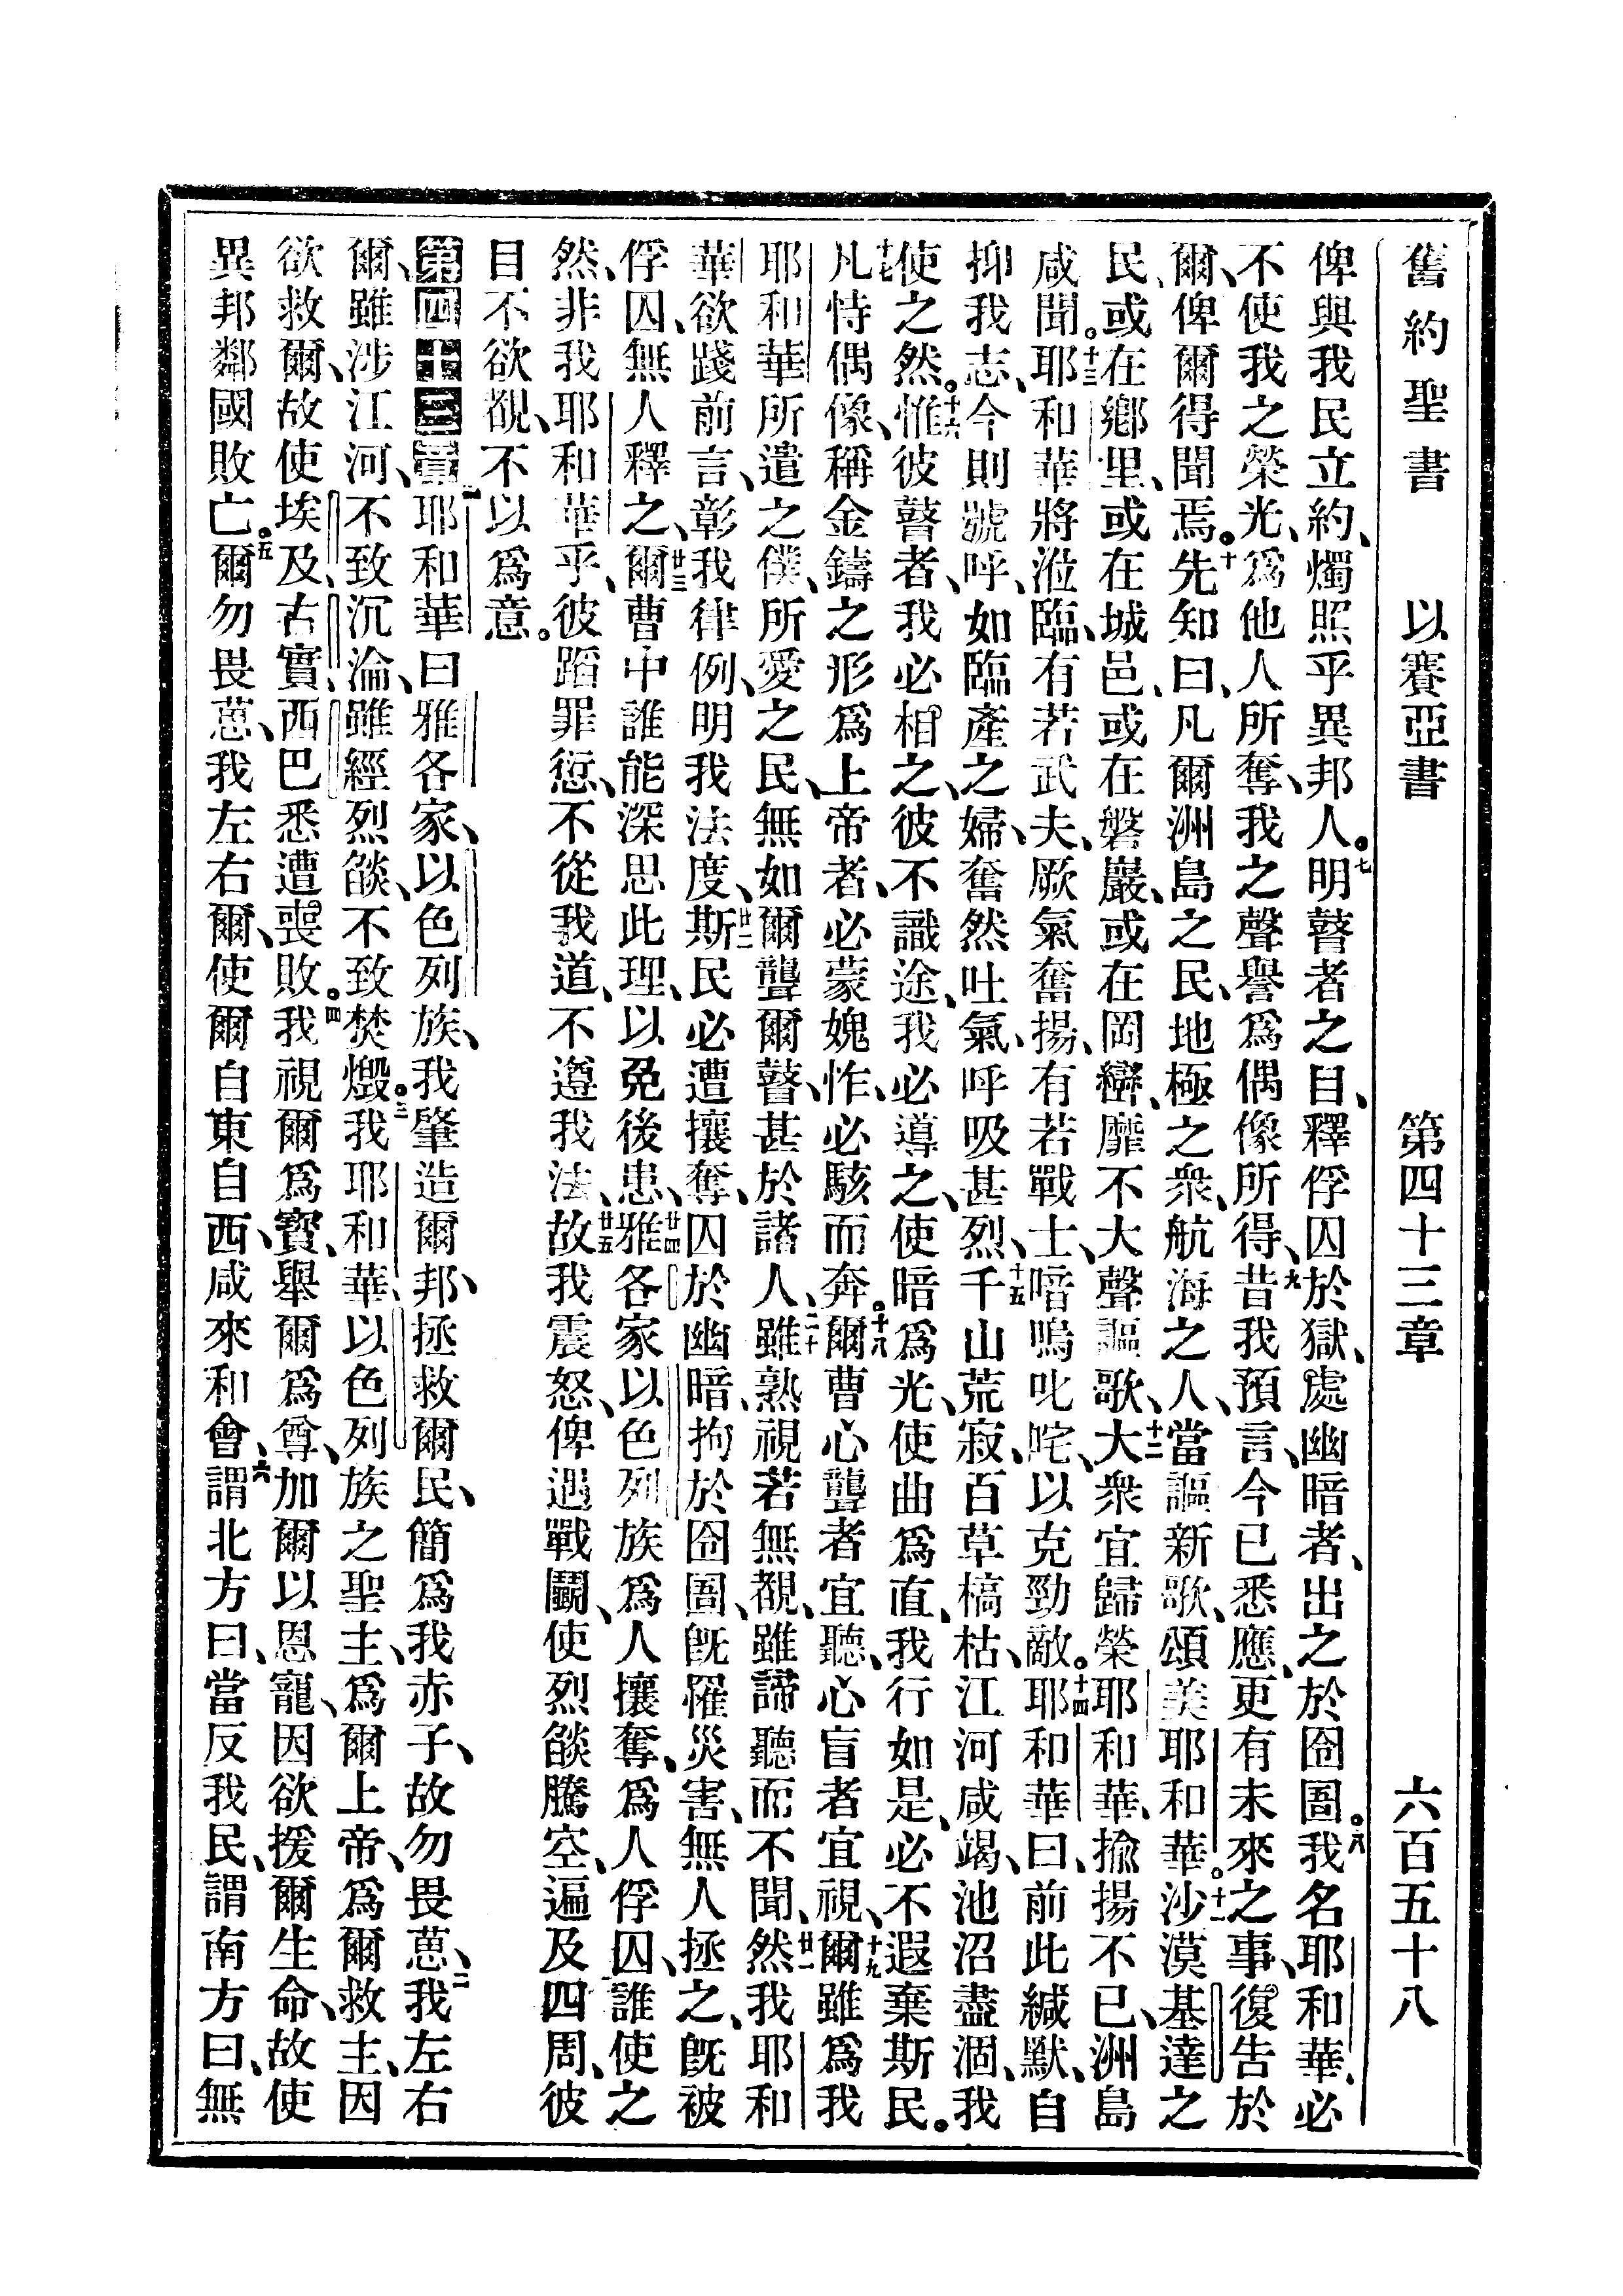 舊約聖書 以賽亞書 第四十三章 六百五十八
俾與我民立約、燭照乎異邦人。七明瞽者之目、釋俘囚於獄、處幽暗者、出之於囹圄。八我名耶和華、必
不使我之榮光、爲他人所奪、我之聲譽爲偶像所得、九昔我預言、今已悉應、更有未來之事、復告於
爾、俾爾得聞焉。十先知曰、凡爾洲島之民、地極之衆、航海之人、當謳新歌、頌美耶和華。十一沙漠基達之
民、或在鄉里、或在城邑、或在磐巖、或在岡巒、靡不大聲謳歌、十二大衆宜歸榮耶和華、揄揚不已、洲島
咸聞。十三耶和華將涖臨、有若武夫、厥氣奮揚、有若戰士、喑嗚叱咤、以克勁敵。十四耶和華曰、前此緘默、自
抑我志、今則號呼、如臨產之婦、奮然吐氣、呼吸甚烈、十五千山荒寂、百草槁枯、江河咸竭、池沼盡涸、我
使之然。十六惟彼瞽者、我必相之、彼不識途、我必導之、使暗爲光、使曲爲直、我行如是、必不遐棄斯民。
十七凡恃偶像、稱金鑄之形爲上帝者、必蒙媿怍、必駭而奔。十八爾曹心聾者宜聽、心盲者宜視、十九爾雖爲我
耶和華所遣之僕、所愛之民、無如爾聾爾瞽、甚於諸人、二十雖熟視若無覩、雖諦聽而不聞、廿一然我耶和
華欲踐前言、彰我律例、明我法度、廿二斯民必遭攘奪、囚於幽暗、拘於囹圄、旣罹災害、無人拯之、旣被
俘囚、無人釋之、廿三爾曹中誰能深思此理、以免後患、廿四雅各家以色列族爲人攘奪、爲人俘囚、誰使之
然、非我耶和華乎、彼蹈罪愆、不從我道、不遵我法、廿五故我震怒、俾遇戰鬭、使烈燄騰空、遍及四周、彼
目不欲覩、不以爲意。
第四十三章 一耶和華曰、雅各家、以色列族、我肇造爾邦、拯救爾民、簡爲我赤子、故勿畏葸、二我左右
爾、雖涉江河、不致沉淪、雖經烈燄、不致焚燬。三我耶和華、以色列族之聖主、爲爾上帝、爲爾救主、因
欲救爾、故使埃及、古實、西巴悉遭喪敗。四我視爾爲寶、舉爾爲尊、加爾以恩寵、因欲援爾生命、故使
異邦鄰國敗亡。五爾勿畏葸、我左右爾、使爾自東自西、咸來和會、六謂北方曰、當反我民、謂南方曰、無